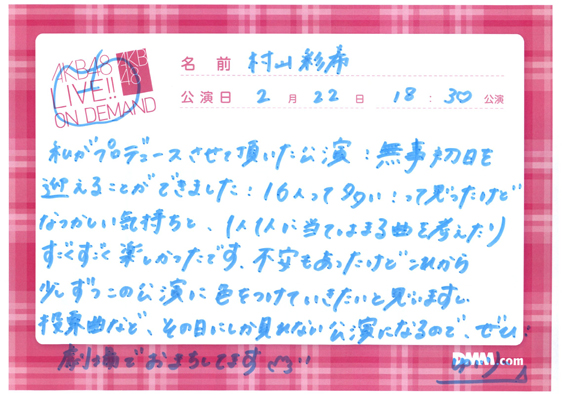 AKB48
LIVE!!
ON DEMAND
AKB
48
名前 村山彩希
公演日 2月22日 18:30公演
私がプロデュースさせて頂いた公演!無事初日を
迎えることができました!16人って多い!って思ったけど
なつかしい気持ちと、1人1人に当てはまる曲を考えたり
すごくすごく楽しかったです、不安もあったけどこれから
少しずつこの公演に色をつけていきたいと思いますし
投票曲など、その日にしか見れない公演になるので、ぜひ!
劇場でおまちしてます
DMM.com